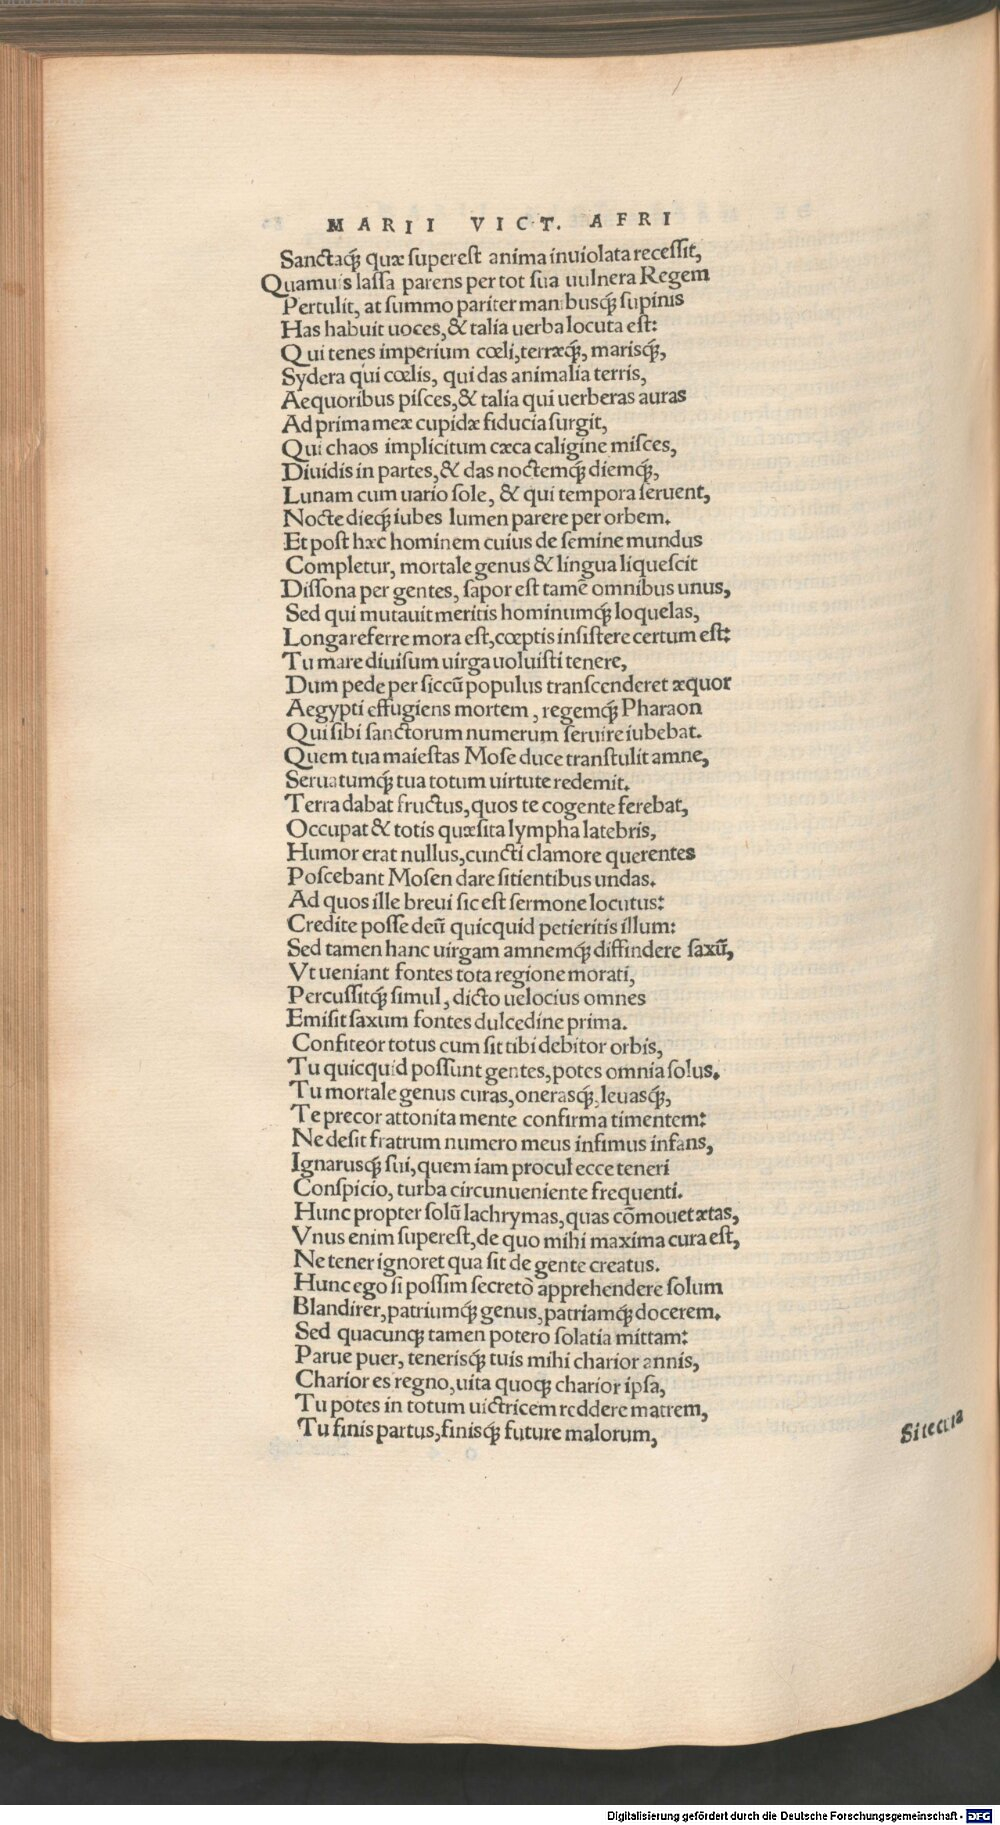 MARII VICT. AFRI
Sanctaq́; quæ superest anima inuiolata recessit,
Quamuis lassa parens per tot sua uulnera Regem
Pertulit, at summo pariter manibusq́; supinis
Has habuit uoces, & talia uerba locuta est:
Qui tenes imperium cœli, terræq́;, marisq́;,
Sydera qui cœlis, qui das animalia terris,
Aequoribus pisces, & talia qui uerberas auras
Ad prima meæ cupidæ fiducia surgit,
Qui chaos implicitum cæca caligine misces,
Diuidis in partes, & das noctemq́; diemq́;,
Lunam cum uario sole, & qui tempora seruent,
Nocte dieq́; iubes lumen parere per orbem.
Et post hæc hominem cuius de semine mundus
Completur, mortale genus & lingua liquescit
Dissona per gentes, sapor est tamē omnibus unus,
Sed qui mutauit meritis hominumq́; loquelas,
Longa referre mora est, cœptis insistere certum est:
Tu mare diuisum uirga uoluisti tenere,
Dum pede per siccū populus transcenderet æquor
Aegypti effugiens mortem, regemq́; Pharaon
Qui sibi sanctorum numerum seruire iubebat.
Quem tua maiestas Mose duce transtulit amne,
Seruatumq́; tua totum uirtute redemit.
Terra dabat fructus, quos te cogente ferebat,
Occupat & totis quæsita lympha latebris,
Humor erat nullus, cuncti clamore querentes
Poscebant Mosen dare sitientibus undas.
Ad quos ille breui sic est sermone locutus:
Credite posse deū quicquid petieritis illum:
Sed tamen hanc uirgam amnemq́; diffindere saxū,
Vt ueniant fontes tota regione morati,
Percussitq́; simul, dicto uelocius omnes
Emisit saxum fontes dulcedine prima.
Confiteor totus cum sit tibi debitor orbis,
Tu quicquid possunt gentes, potes omnia solus.
Tu mortale genus curas, onerasq́;, leuasq́;,
Te precor attonita mente confirma timentem:
Ne desit fratrum numero meus infimus infans,
Ignarusq́; sui, quem iam procul ecce teneri
Conspicio, turba circunueniente frequenti.
Hunc propter solū lachrymas, quas cōmouet ætas,
Vnus enim superest, de quo mihi maxima cura est,
Ne tener ignoret qua sit de gente creatus.
Hunc ego si possim secretò apprehendere solum
Blandirer, patriumq́; genus, patriamq́; docerem.
Sed quacunq; tamen potero solatia mittam:
Parue puer, tenerisq́; tuis mihi charior annis,
Charior es regno, uita quoq; charior ipsa,
Tu potes in totum uictricem reddere matrem,
Tu finis partus, finisq́; future malorum,
Digitalisierung gefördert durch die Deutsche Forschungsgemeinschaft - DFG